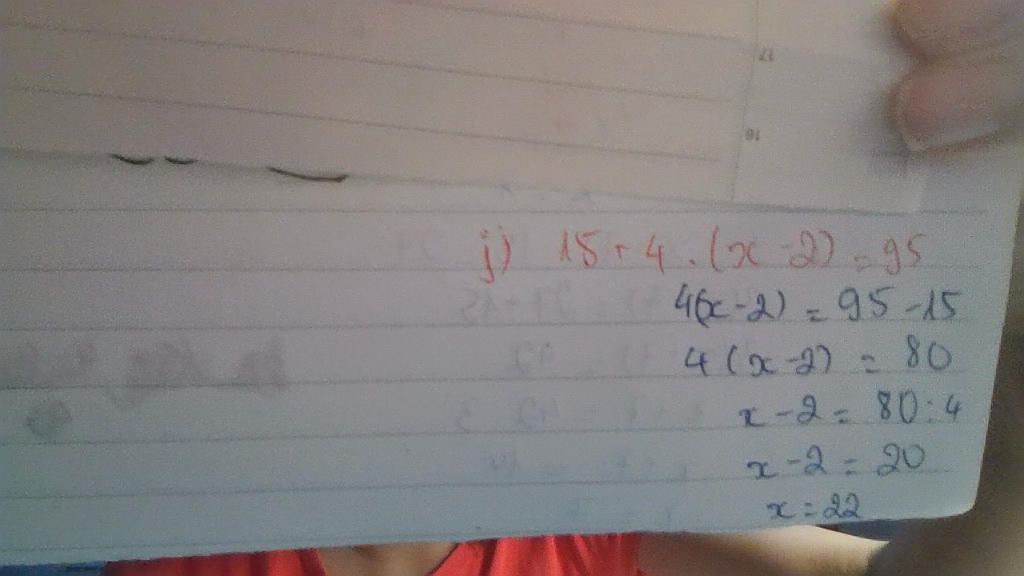 17
16
j) 15 + 4 . (x - 2) = 95
4(x - 2) = 95 - 15
4 (x - 2) = 80
x - 2 = 80 : 4
x - 2 = 20
x = 22